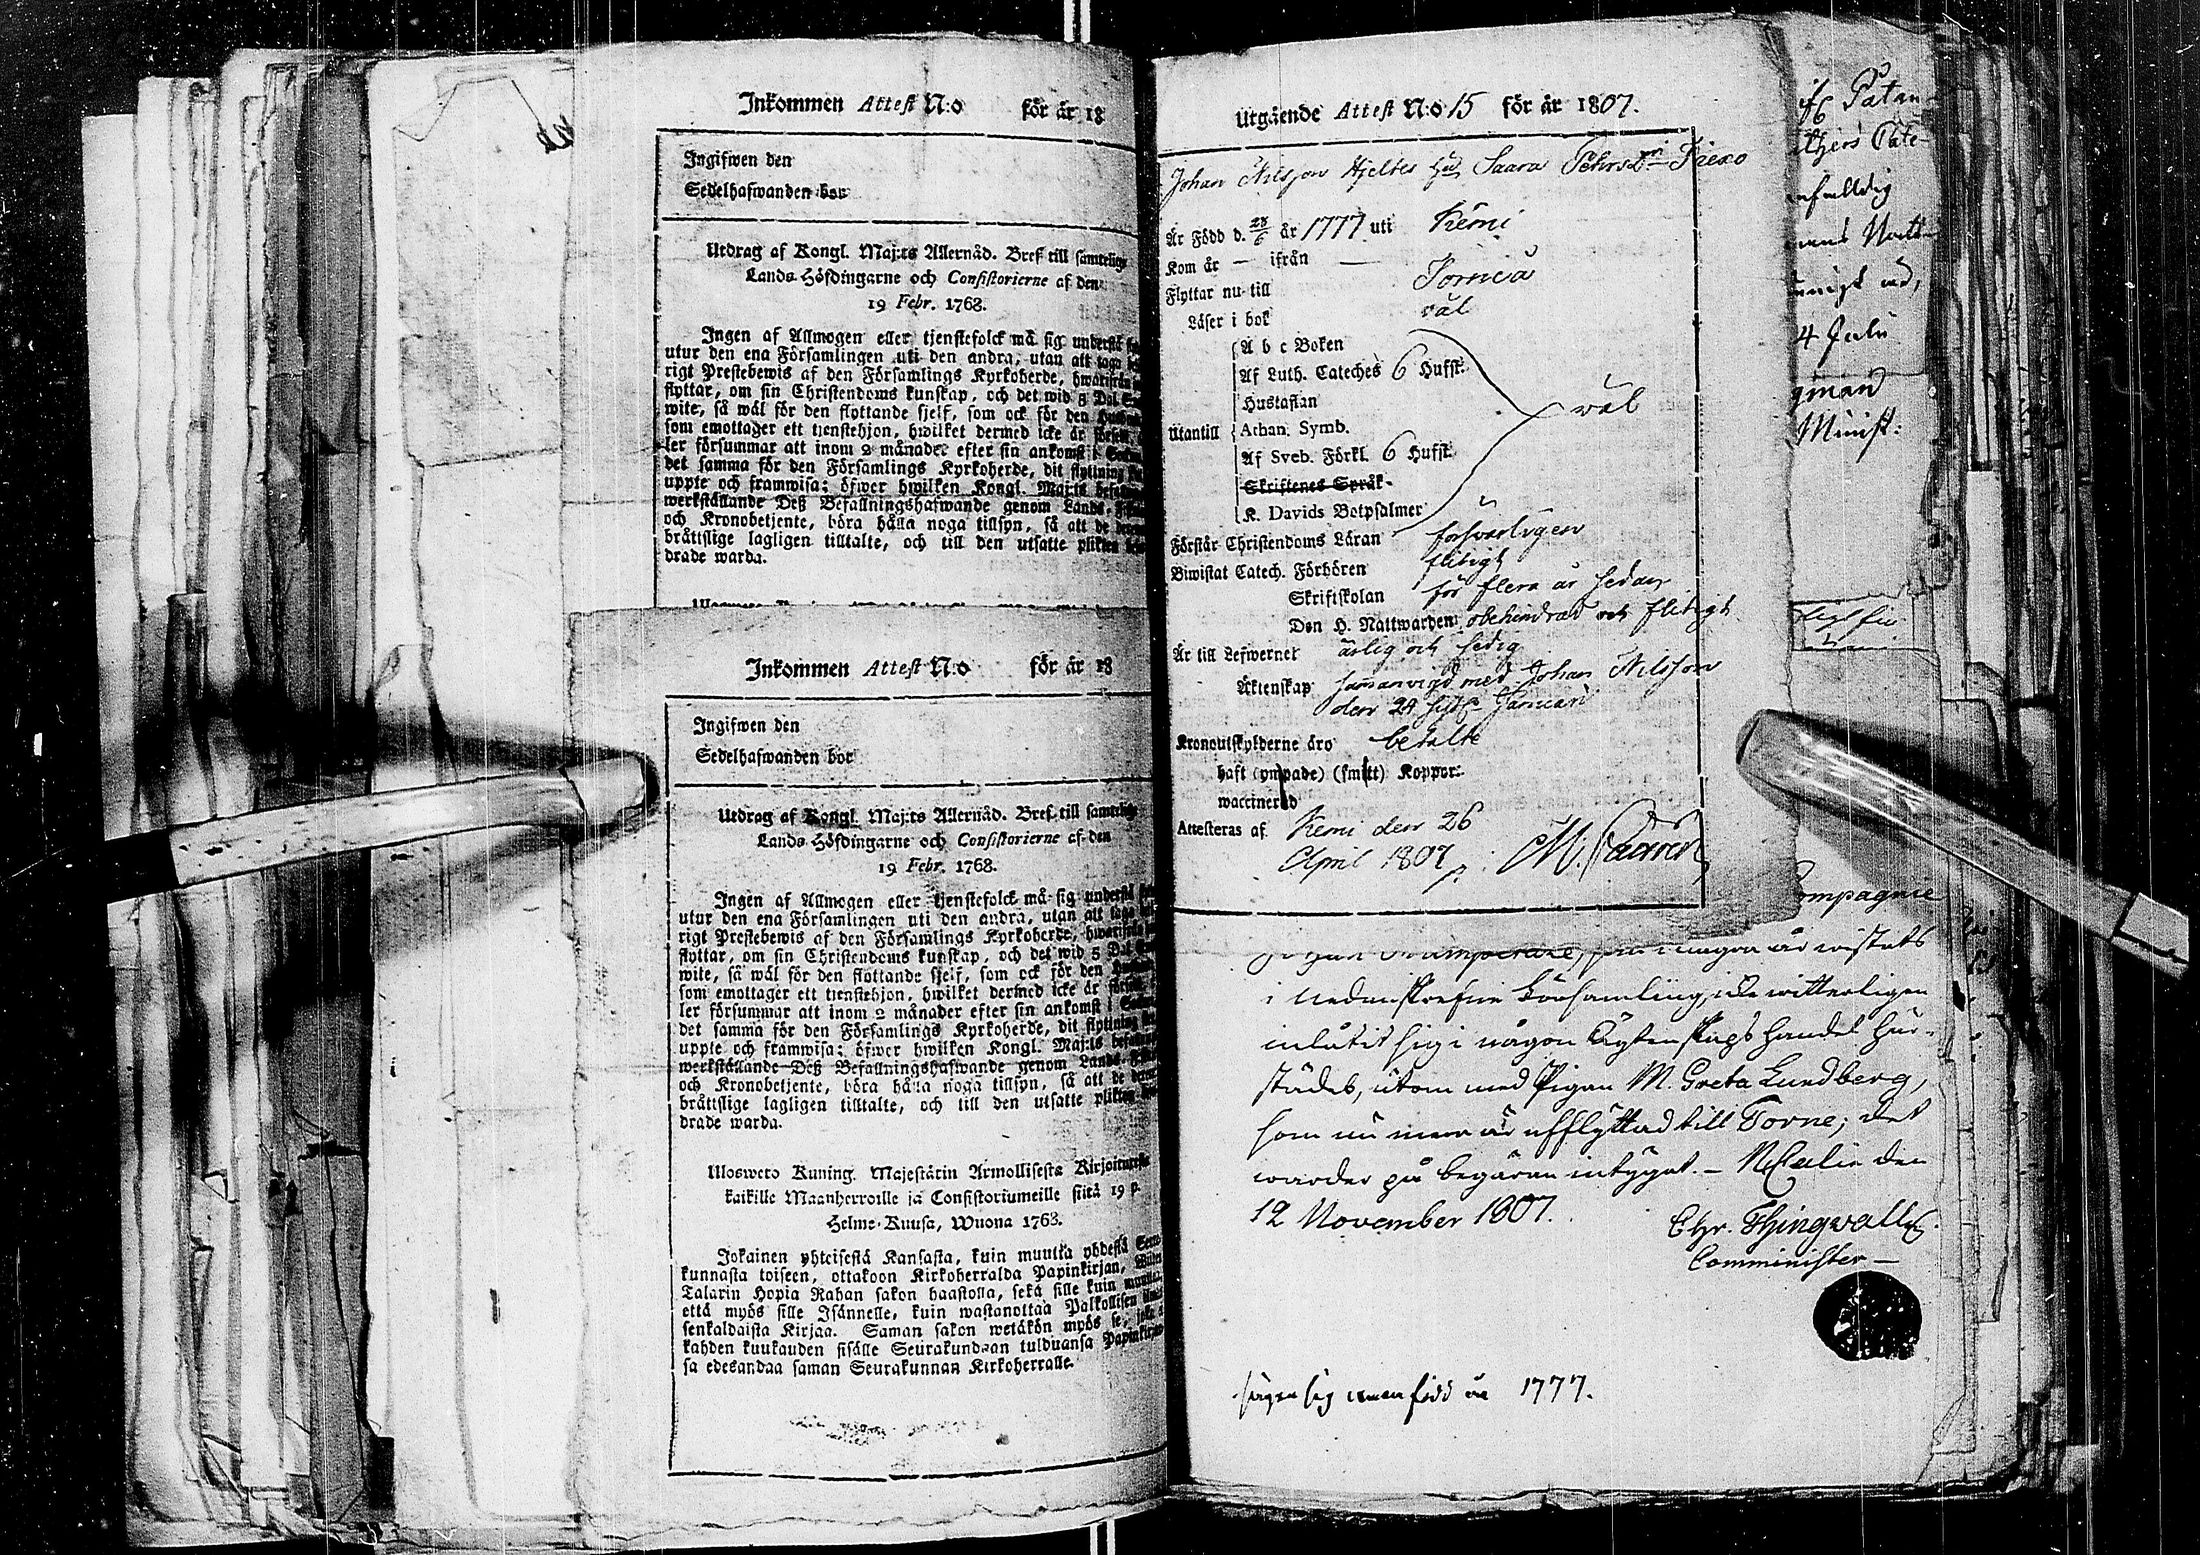 Inkommen Attest N:o för år 18
Ingifwen den
Sedelhafwanden bor
Utdrag af Kongl. Maj:ts Allernåd. Bref till samtelige
Lands-Höfdingarne och Consistorierne af den
19 Febr. 1768.
Ingen af Allmogen eller tjenstefolck må sig understå
utur den ena Församlingen uti den andra, utan att taga
rigt Prestebewis af den Församlings Kyrkoherde, hwarifrån
flyttar, om sin Christendoms kunskap, och det wid 5 Dal.
wite, så wäl för den flyttande sjelf, som ock för den
som emottager ett tjenstehjon, hwilket dermed icke är
ler försummar att inom 2 månader efter sin ankomst i
det samma för den Församlings Kyrkoherde, dit flyttning
uppte och framwisa; öfwer hwilken Kongl. Maj:ts
werkställande Deß Befallningshafwande genom Lands-
och Kronobetjente, böra hålla noga tillsyn, så att de
bråttslige lagligen tilltalte, och till den utsatte plikten
drade warda.
Inkommen Attest N:o för år 18
Ingifwen den
Sedelhafwanden bor
Utdrag af Kongl. Maj:ts Allernåd. Bref till samtelige
Lands-Höfdingarne och Consistorierne af den
19 Febr. 1768.
Ingen af Allmogen eller tjenstefolck må sig understå
utur den ena Församlingen uti den andra, utan att taga
rigt Prestebewis af den Församlings Kyrkoherde, hwarifrån
flyttar, om sin Christendoms kunskap, och det wid 5 Dal.
wite, så wäl för den flyttande sjelf, som ock för den
som emottager ett tjenstehjon, hwilket dermed icke är
ler försummar att inom 2 månader efter sin ankomst i
det samma för den Församlings Kyrkoherde, dit flyttning
uppte och framwisa; öfwer hwilken Kongl. Maj:ts
werkställande Deß Befallningshafwande genom Lands-
och Kronobetjente, böra hålla noga tillsyn, så att de
bråttslige lagligen tilltalte, och till den utsatte plikten
drade warda.
Ulosweto Kuning. Majestätin Armollisesta Kirjoituxesta
kaikille Maanherroille ja Consistoriumeille siitä 19 p.
Helme-Kuusa, Wuona 1768.
Jokainen yhteisestä Kansasta, kuin muutta yhdestä
kunnasta toiseen, ottakoon Kirkoherralda Papinkirjan,
Talarin Hopia Rahan sakon haastolla, sekä sille kuin muutta,
että myös sille Isännelle, kuin wastanottaa Palkollisen
senkaldaista Kirjaa. Saman sakon wetäkön myös se, joka
kahden kuukauden sisälle Seurakundaan tulduansa
sa edesandaa saman Seurakunnan Kirkoherralle.
Utgående Attest N:o 15 för år 1807.
Johan Nilsson Hjeltes Hu Saara Pehrsdr
Är Född d. 28/6 år 1777 uti Kemi
Kom år — ifrån —
Flyttar nu till Torneå
Läser i bok väl
A b c Boken
Af Luth. Cateches 6 Hufst.
Hustaflan
Utantill Athan. Symb. väl
Af Sveb. Förkl. 6 Hufst.
Skriftenes Språk.
K. Davids Botpsalmer
Förstår Christendoms Läran försvarligen
Biwistat Catech. Förhören flitigt
Skriftskolan för flera år sedan
Den H. Nattwarden obehindrad och flitigt
Är till Lefwernet ärlig och sedig
Äktenskap samanvigd med Johan Nilsson
den 24 sistl. Januari
Kronoutskylderne äro betalte
haft (ympade) (smitt) Koppor.
waccinerad
Attesteras af Kemi den 26
April 1807
Compagnie
som i någon år wistats
i nedanskrefne Församling, icke witterligen
inlåtit sig i någon Ägtenskaps handel här-
städes, utom med Pigan M. Greta Lundberg,
som nu mera är afflyttad till Torne; det
warder på begäran intygat. – den
12 November 1807.
Chr. Thingwall
Comminister
säger sig wara född år 1777.
4 Julii
Minist: